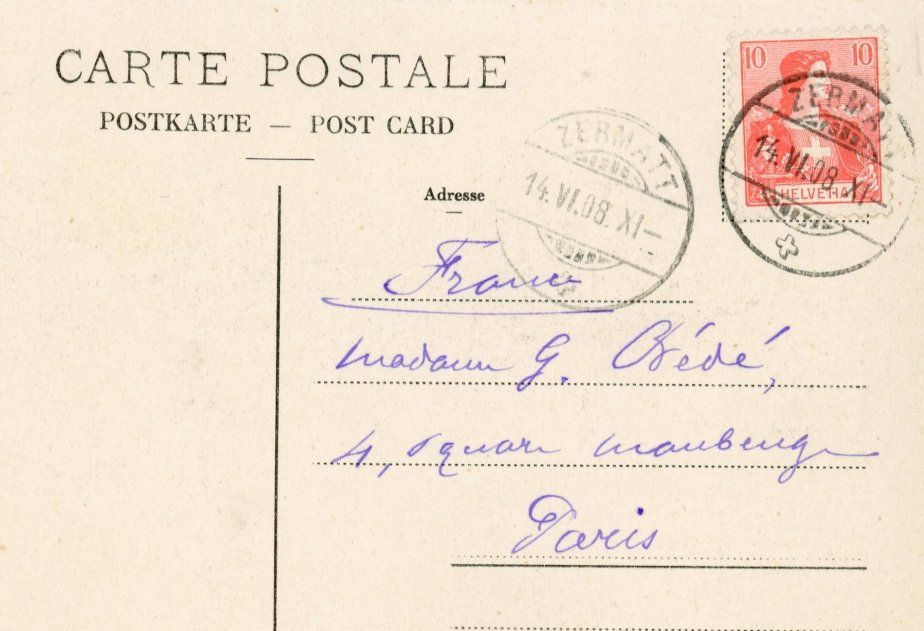 CARTE POSTALE
POSTKARTE — POST CARD
10 10
HELVETIA
ZERMATT
14.VI.08.XI—
ZERMATT
14.VI.08.XI—
Adresse
France
Madame G. Bédé,
4, Square Maubeuge
Paris